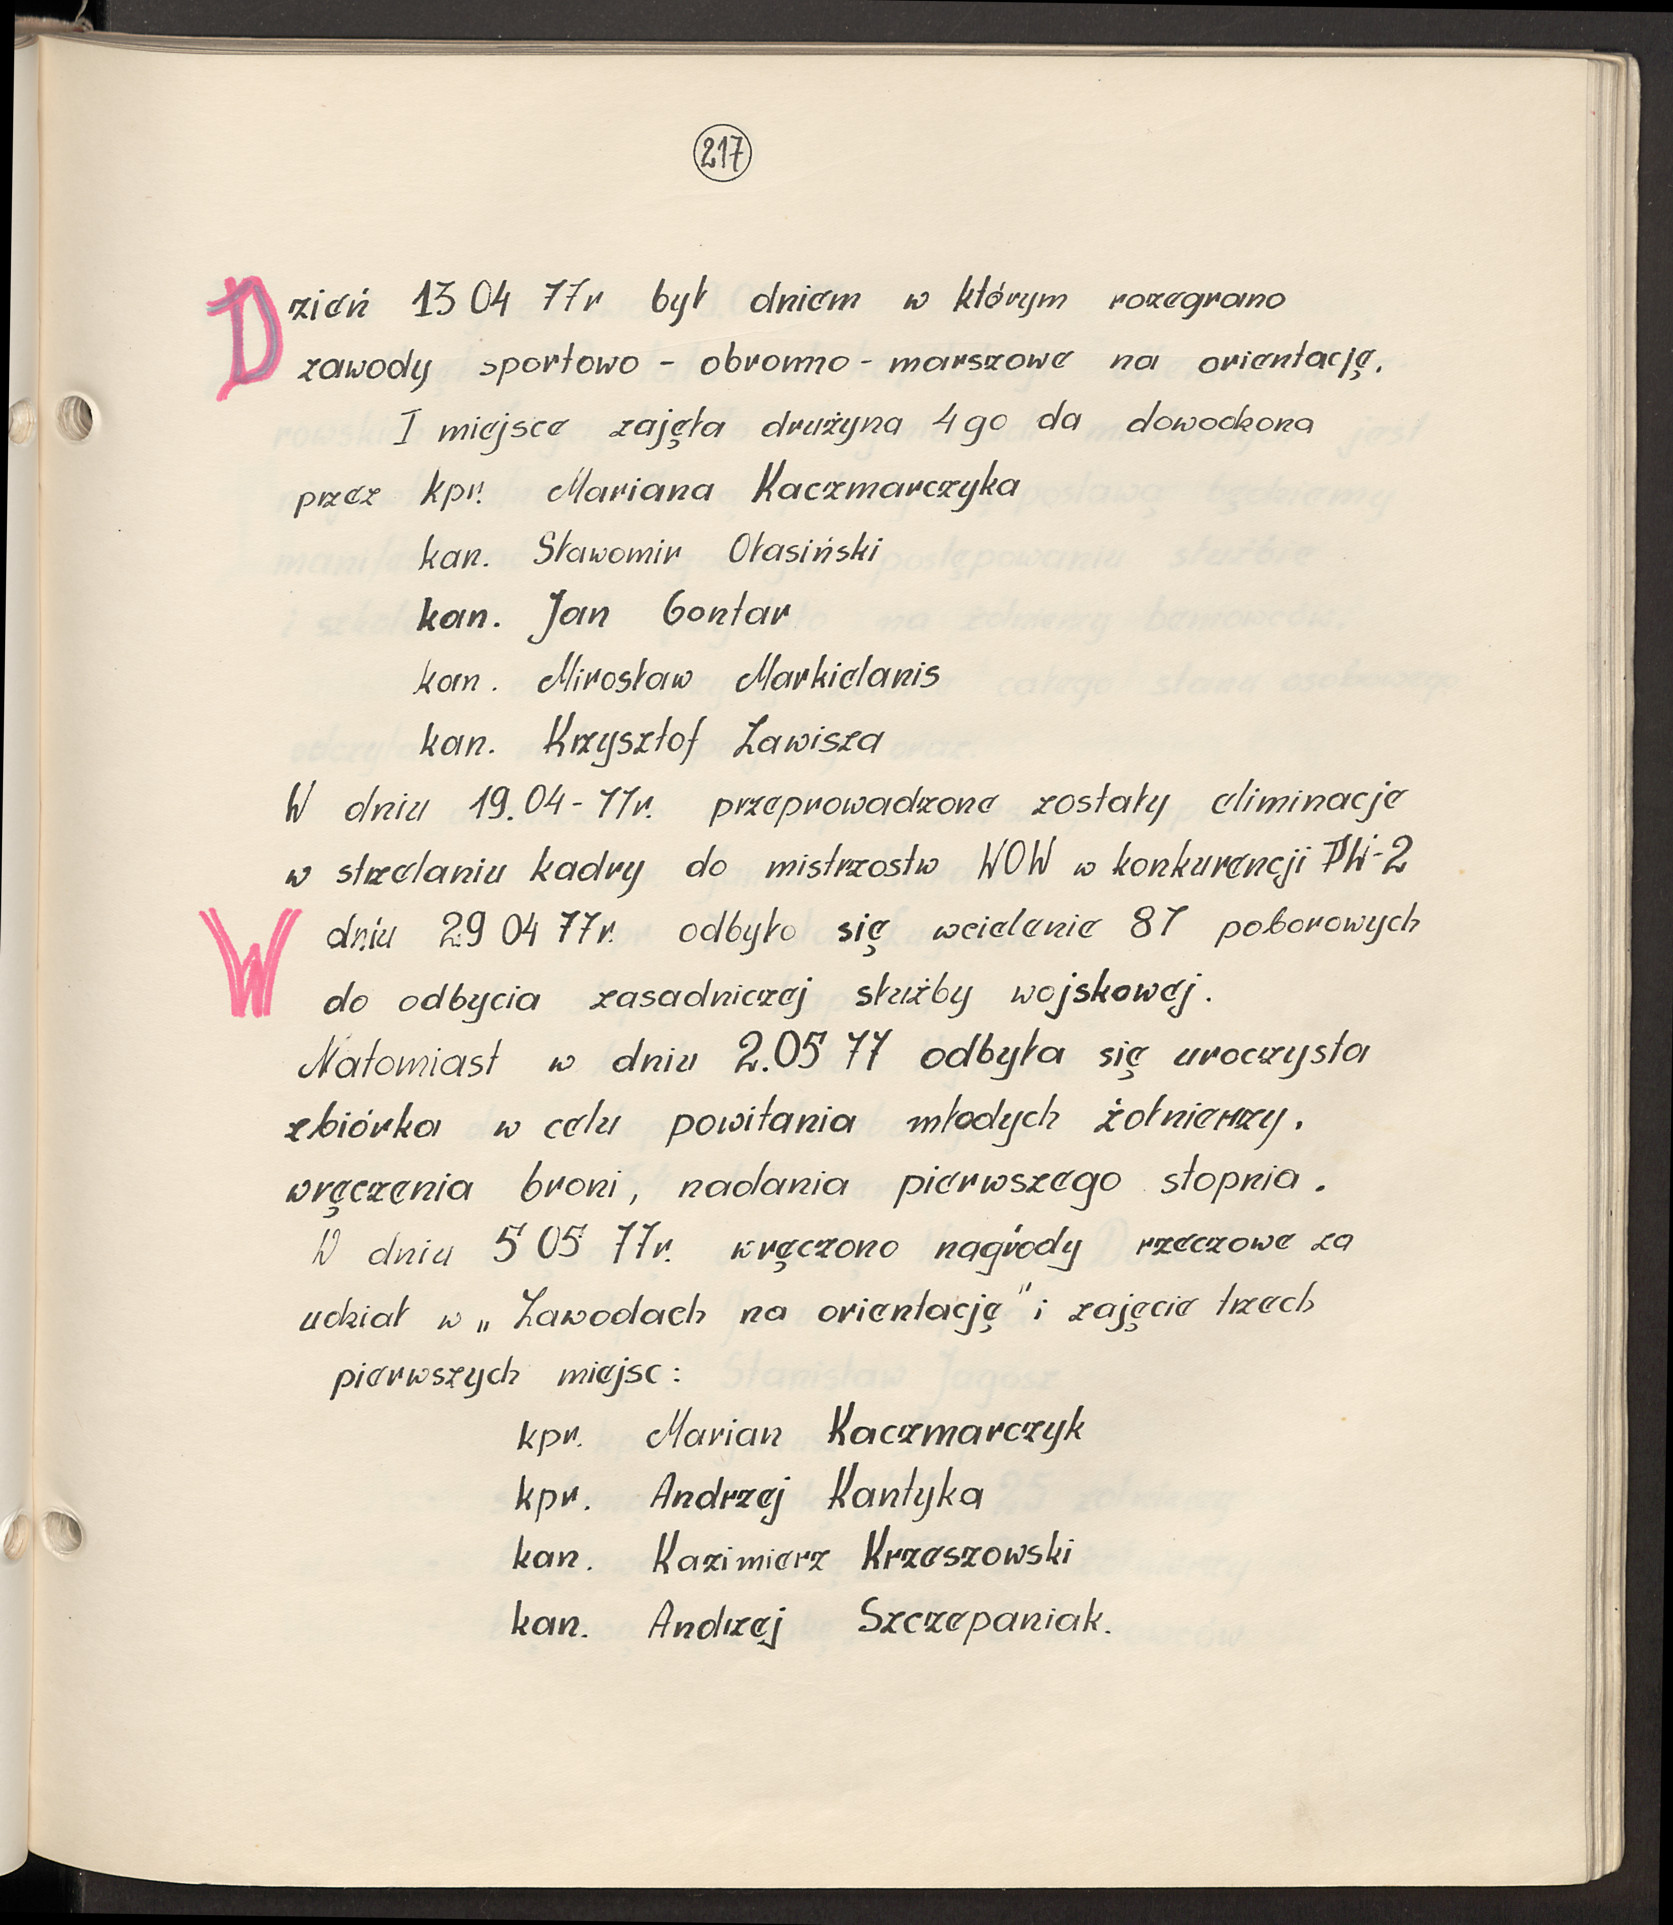 217
Dzień 13 04 77r był dniem w którym rozegrano
zawody sportowo - obronno - marszowe na orientację.
I miejsce zajęła drużyna 4 go da dowodzona
przez kpr. Mariana Kaczmarczyka
kan. Sławomir Ołasiński
kan. Jan Gontar
kan. Mirosław Markielanis
kan. Krzysztof Zawisza
W dniu 19.04-77r. przeprowadzone zostały eliminacje
w strzelaniu kadry do mistrzostw WOW w konkurencji PW-2
W dniu 29 04 77r. odbyło się wcielenie 87 poborowych
do odbycia zasadniczej służby wojskowej.
Natomiast w dniu 2.05 77 odbyła się uroczysta
zbiórka w celu powitania młodych żołnierzy.
wręczenia broni, nadania pierwszego stopnia.
W dniu 5 05 77r. wręczono nagrody rzeczowe za
udział w „Zawodach na orientację" i zajęcie trzech
pierwszych miejsc:
kpr. Marian Kaczmarczyk
kpr. Andrzej Kantyka
kan. Kazimierz Krzeszowski
kan. Andrzej Szczepaniak.